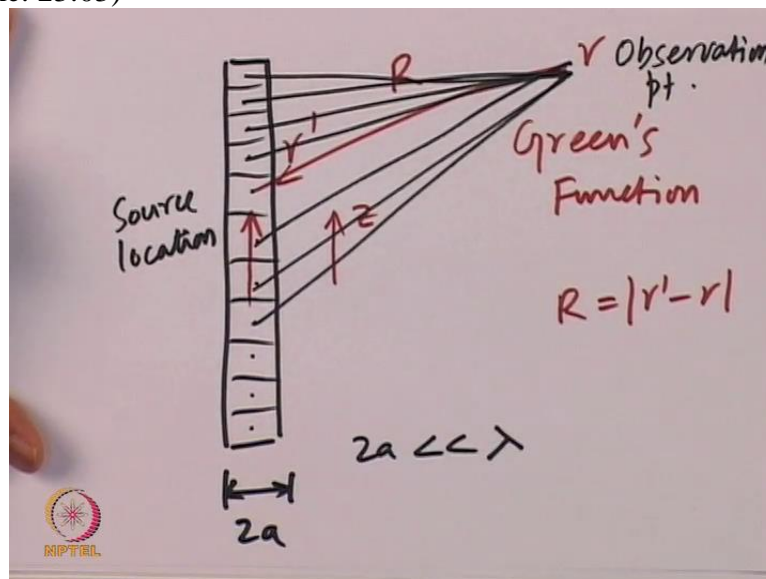 e: 25:05)
R
r Observation
pt.
Green's
Function
r'
Source
location
z
R = |r' - r|
2a << λ
2a
NPTEL